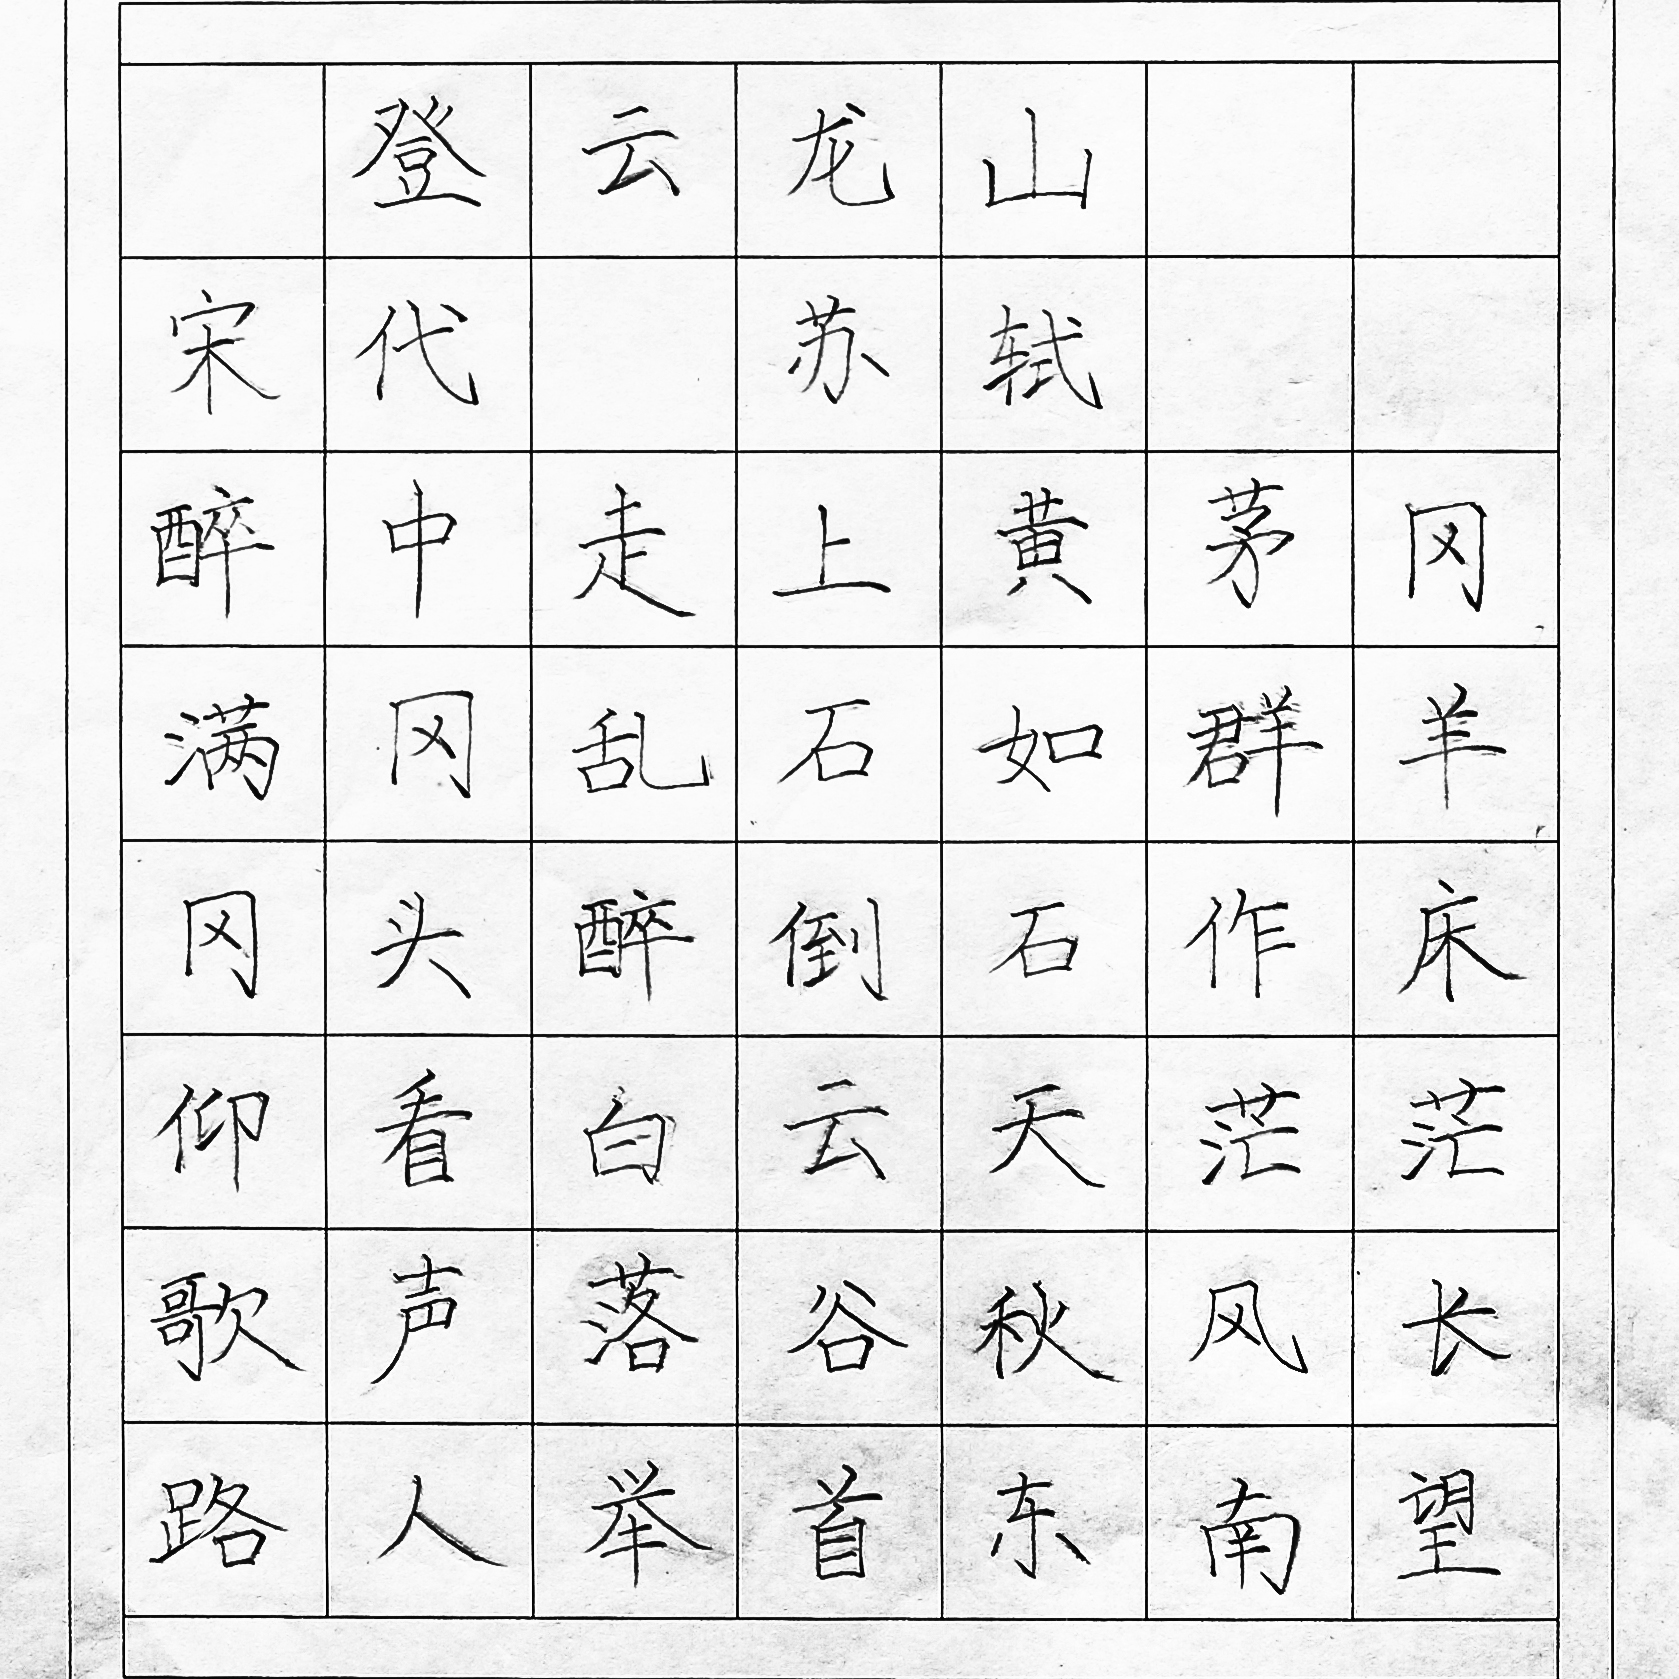 登云龙山
宋代 苏轼
醉中走上黄茅冈
满冈乱石如群羊
冈头醉倒石作床
仰看白云天茫茫
歌声落谷秋风长
路人举首东南望